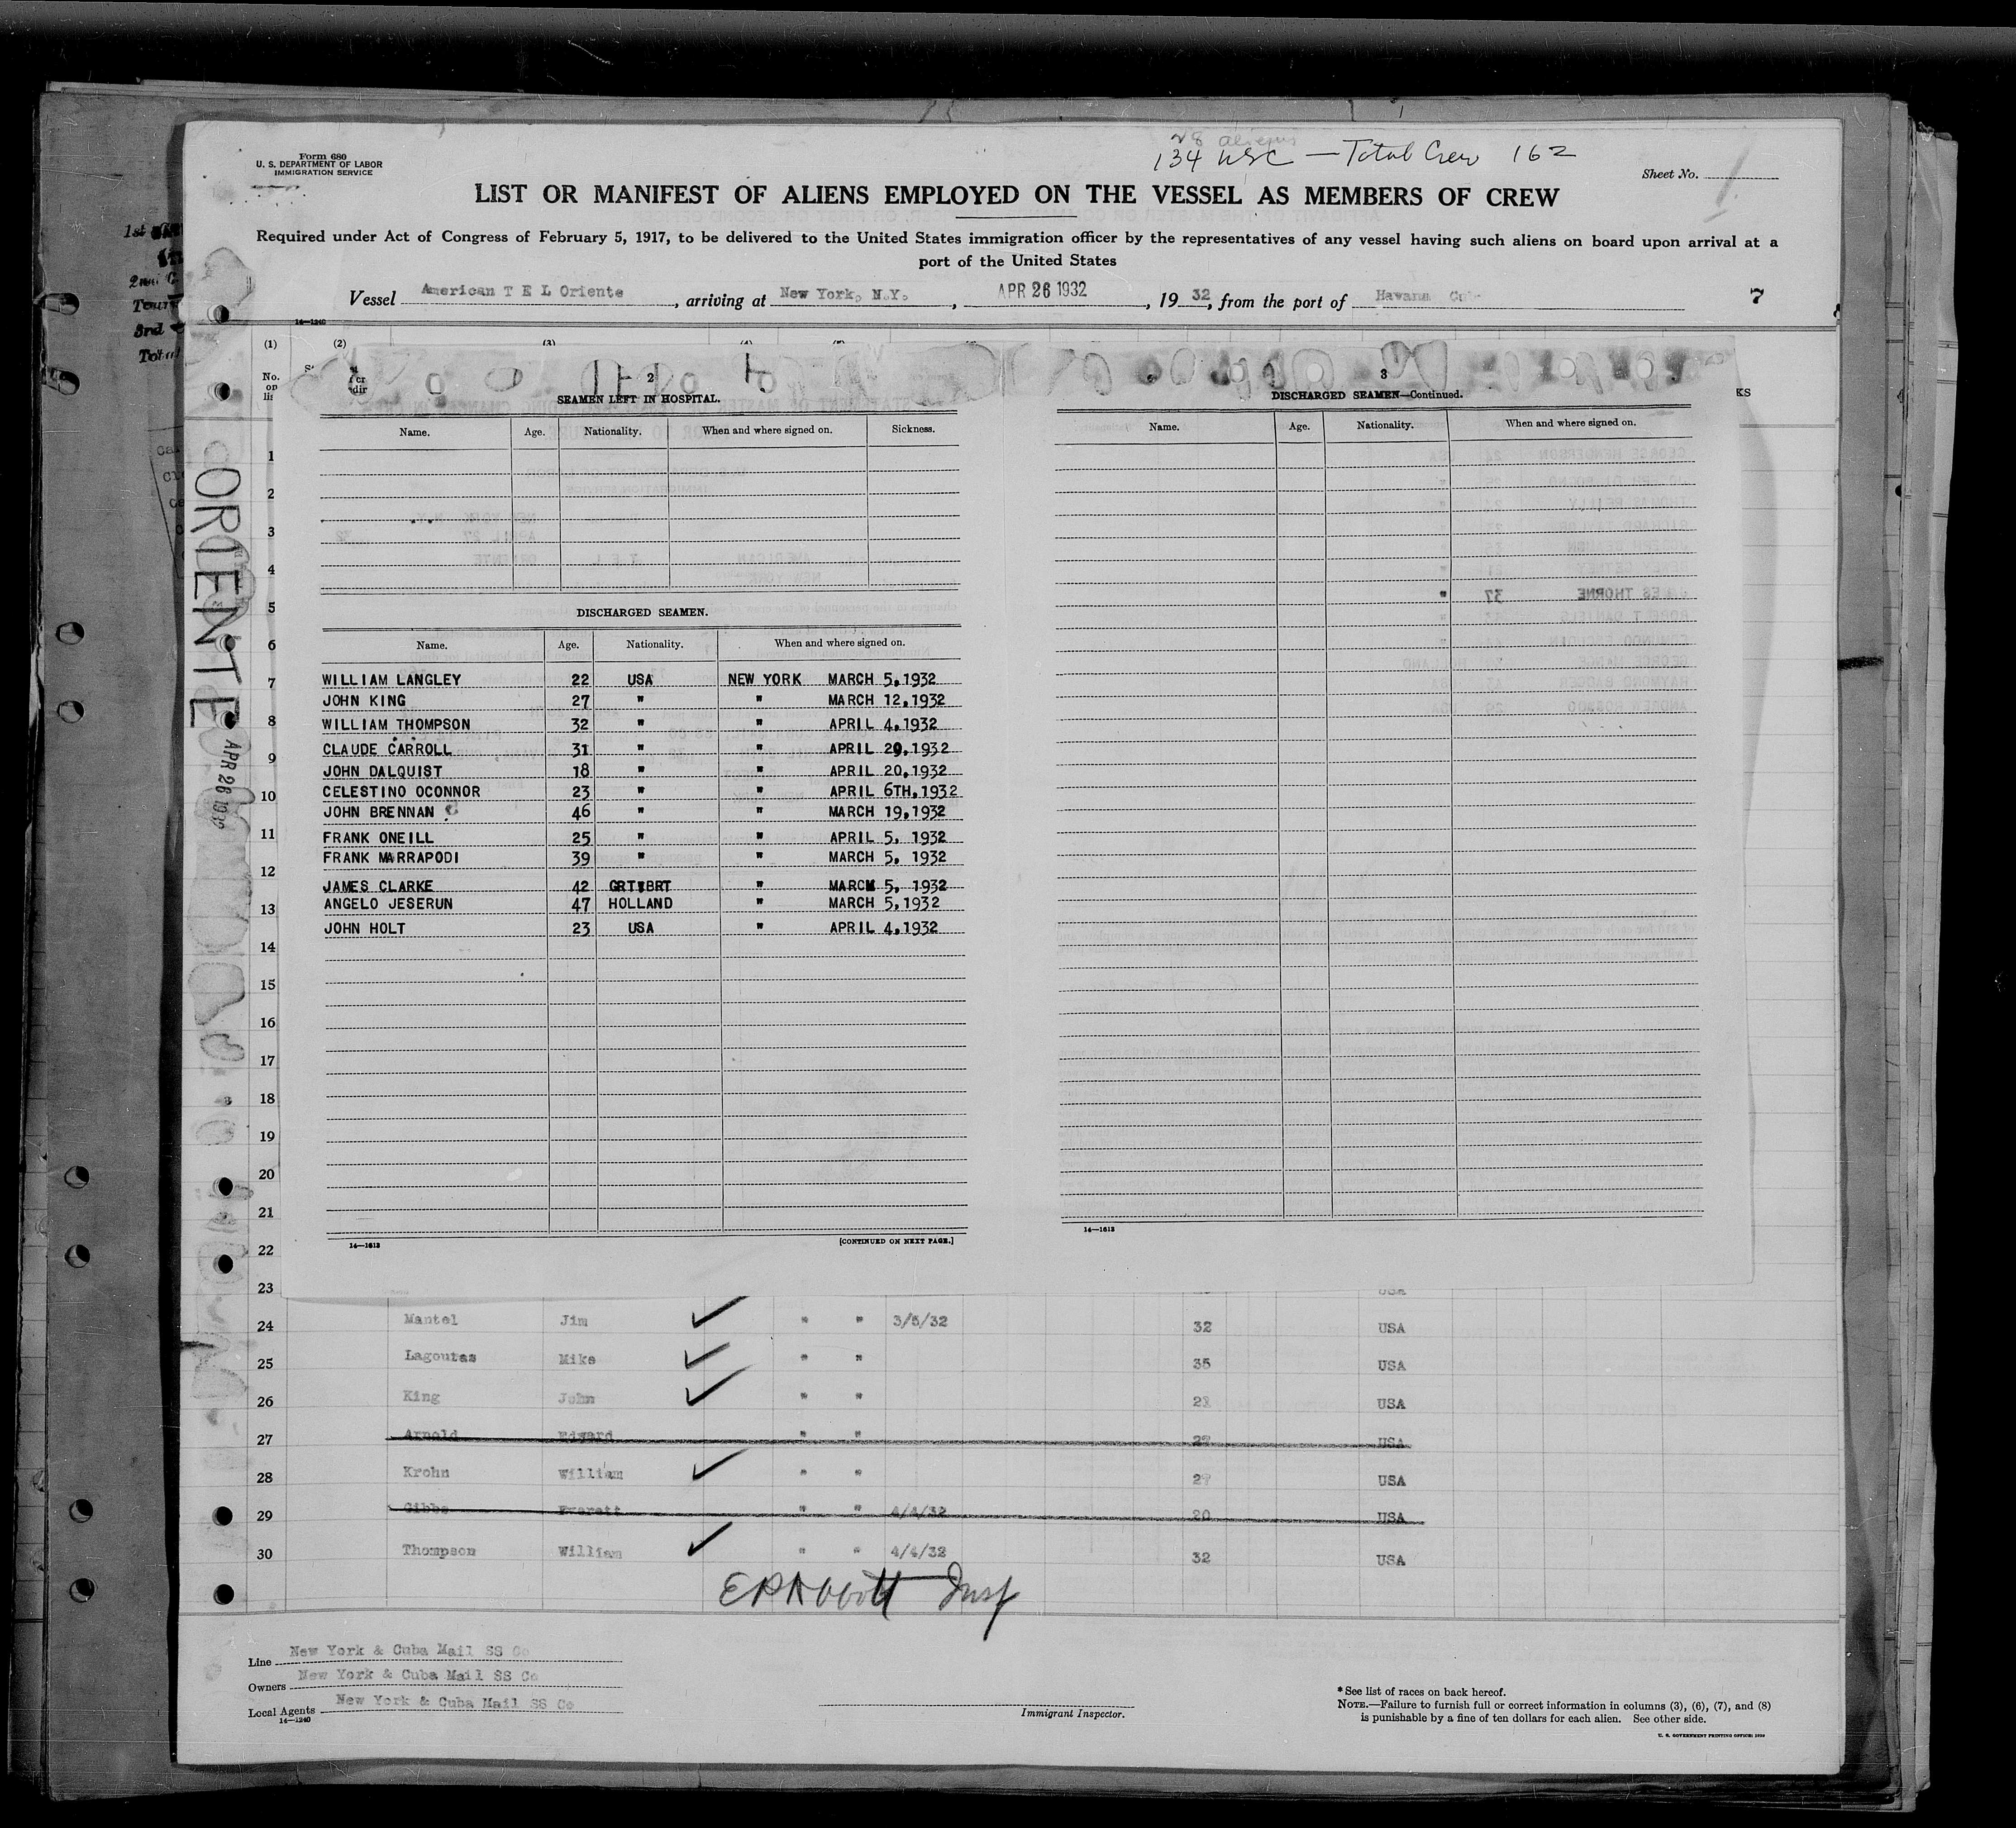 Form 680
U. S. DEPARTMENT OF LABOR
IMMIGRATION SERVICE
28 aliens
134 USC — Total Crew 162
Sheet No. 1
LIST OR MANIFEST OF ALIENS EMPLOYED ON THE VESSEL AS MEMBERS OF CREW
Required under Act of Congress of February 5, 1917, to be delivered to the United States immigration officer by the representatives of any vessel having such aliens on board upon arrival at a
port of the United States
Vessel American T E L Oriente, arriving at New York, N.Y., APR 26 1932, 19 32, from the port of Havana
7
14—1240
(1) (2) (3) (4)
No. on
KS
ORIENTE
APR 26 1932
2
SEAMEN LEFT IN HOSPITAL.
Name. Age. Nationality. When and where signed on. Sickness.
DISCHARGED SEAMEN.
Name. Age. Nationality. When and where signed on.
WILLIAM LANGLEY 22 USA NEW YORK MARCH 5,1932
JOHN KING 27 " " MARCH 12,1932
WILLIAM THOMPSON 32 " " APRIL 4,1932
CLAUDE CARROLL 31 " " APRIL 20,1932
JOHN DALQUIST 18 " " APRIL 20,1932
CELESTINO OCONNOR 23 " " APRIL 6TH,1932
JOHN BRENNAN 46 " " MARCH 19,1932
FRANK ONEILL 25 " " APRIL 5, 1932
FRANK MARRAPODI 39 " " MARCH 5, 1932
JAMES CLARKE 42 GRT BRT " MARCH 5, 1932
ANGELO JESERUN 47 HOLLAND " MARCH 5,1932
JOHN HOLT 23 USA " APRIL 4,1932
14—1613
[CONTINUED ON NEXT PAGE.]
3
DISCHARGED SEAMEN—Continued.
Name. Age. Nationality. When and where signed on.
14—1613
1
2
3
4
5
6
7
8
9
10
11
12
13
14
15
16
17
18
19
20
21
22
23 USA
24 Mantel Jim " " 3/5/32 32 USA
25 Lagoutas Mike " " 35 USA
26 King John " " USA
27 Arnold Edward " " USA
28 Krohn William " " USA
29 Gibbs Everett " " 4/4/32 20 USA
30 Thompson William " " 4/4/32 32 USA
E R Abbott Insp
Line New York & Cuba Mail SS Co
Owners New York & Cuba Mail SS Co
Local Agents New York & Cuba Mail SS Co
14—1240
Immigrant Inspector.
*See list of races on back hereof.
NOTE.—Failure to furnish full or correct information in columns (3), (6), (7), and (8)
is punishable by a fine of ten dollars for each alien. See other side.
U. S. GOVERNMENT PRINTING OFFICE: